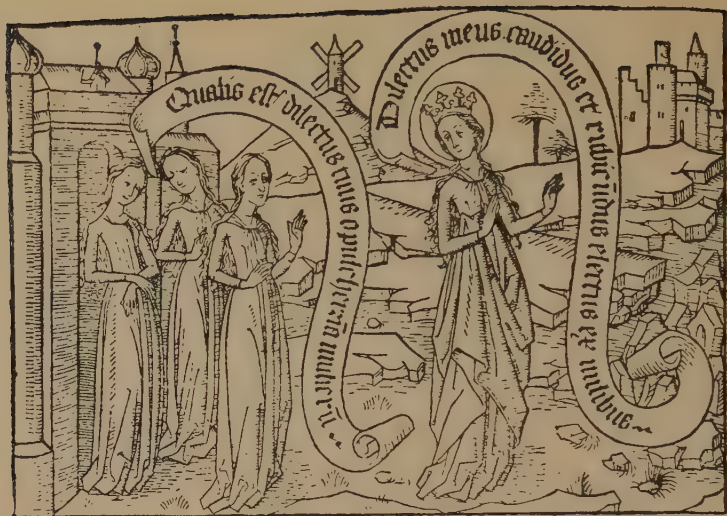 Qualis est dilectus tuus o pulcherrīa mulierū
Dilectus meus candidus et rubicūdus electus ex milibus